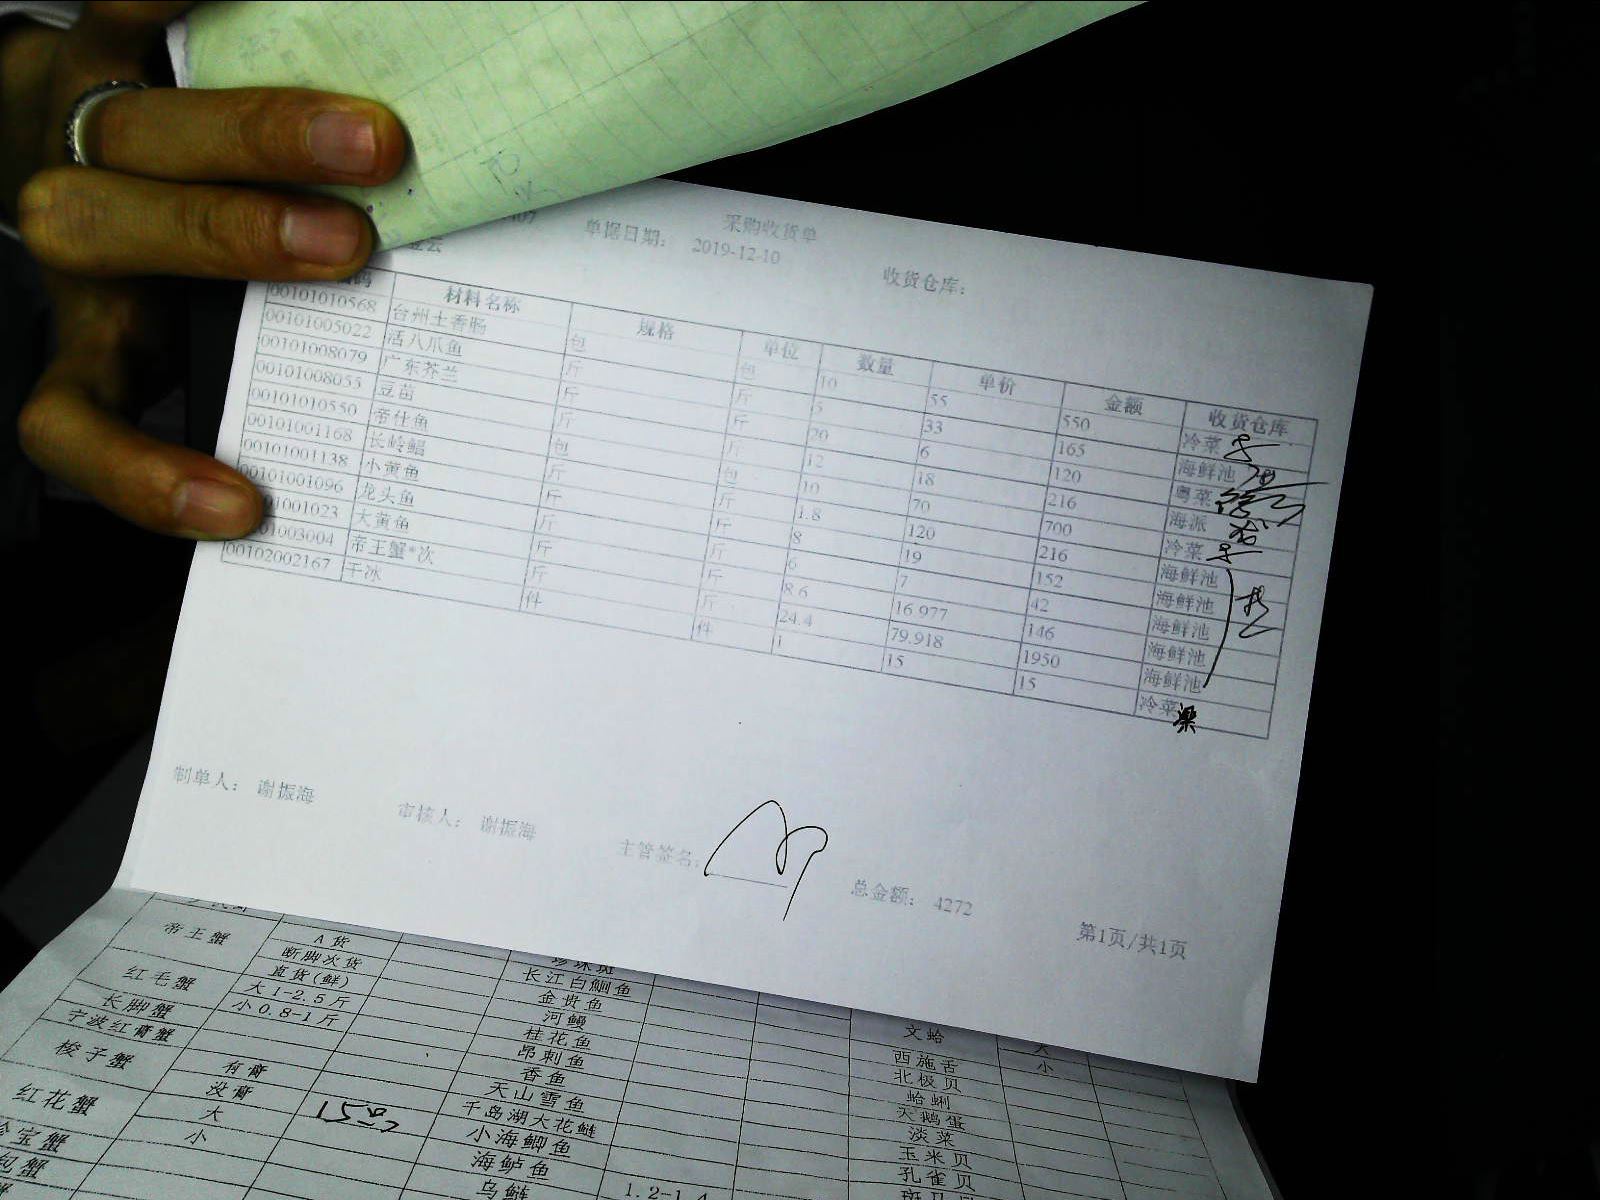 采购收货单
单据日期： 2019-12-10 收货仓库：
材料名称 规格 单位 数量 单价 金额 收货仓库
00101010568 台州土香肠 包 包 10 55 550 冷菜
00101005022 活八爪鱼 斤 斤 5 33 165 海鲜池
00101008079 广东芥兰 斤 斤 20 6 120 粤菜
00101008055 豆苗 斤 斤 12 18 216 海派
00101010550 帝仕鱼 包 包 10 70 700 冷菜
00101001168 长岭鲳 斤 斤 1.8 120 216 海鲜池
00101001138 小黄鱼 斤 斤 8 19 152 海鲜池
00101001096 龙头鱼 斤 斤 6 7 42 海鲜池
001023 大黄鱼 斤 斤 8.6 16.977 146 海鲜池
003004 帝王蟹*次 斤 斤 24.4 79.918 1950 海鲜池
00102002167 干冰 件 件 1 15 15 冷菜
制单人： 谢振海 审核人： 谢振海 主管签名： 总金额： 4272 第1页/共1页
帝王蟹 A货
断脚次货 珍珠斑
红毛蟹 直货(鲜) 长江白鮰鱼
大1-2.5斤 金贵鱼
长脚蟹 小0.8-1斤 河鳗 文蛤 大
宁波红膏蟹 桂花鱼 西施舌 小
梭子蟹 昂刺鱼 北极贝
有膏 香鱼 蛤蜊
没膏 天山雪鱼 天鹅蛋
红花蟹 大 千岛湖大花鲢 淡菜
小 小海鲫鱼 玉米贝
宝蟹 海鲈鱼 孔雀贝
包蟹 乌鲢